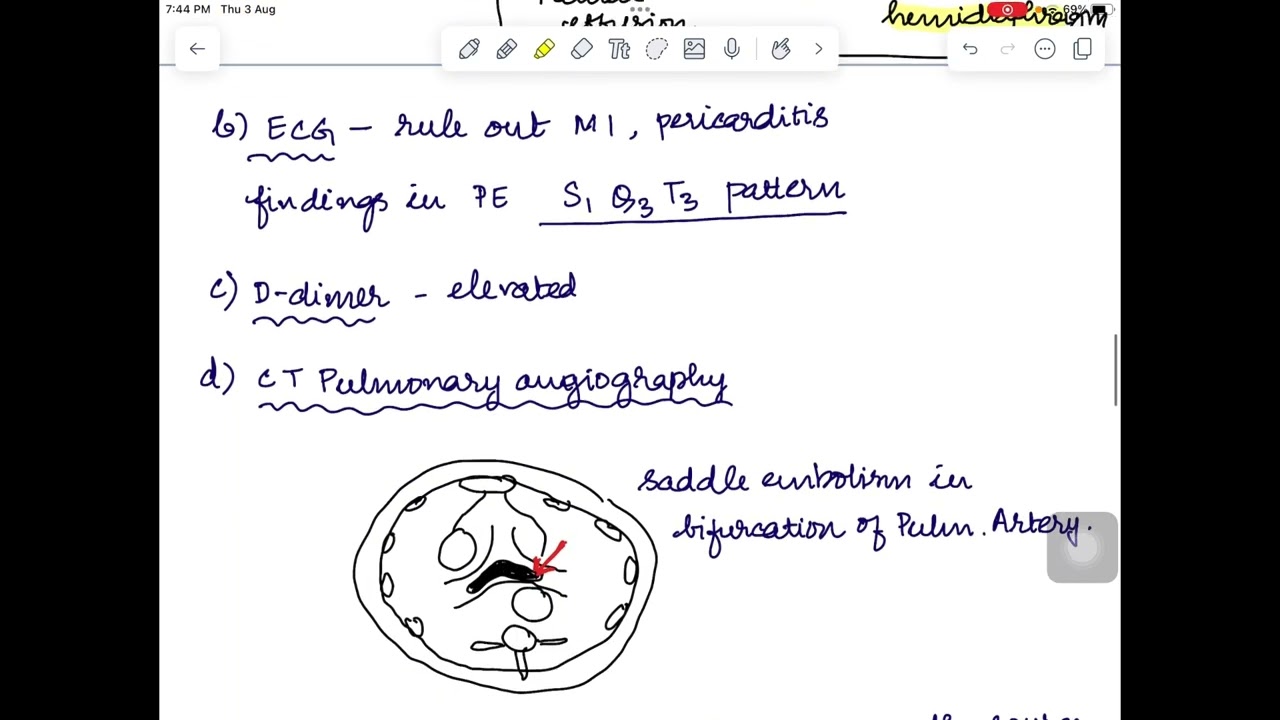 7:44 PM Thu 3 Aug
69%
effusion.
hemidiaphragm
Tt
b) ECG - rule out MI, pericarditis
findings in PE S1 Q3 T3 pattern
c) D-dimer - elevated
d) CT Pulmonary angiography
saddle embolism in
bifurcation of Pulm. Artery.